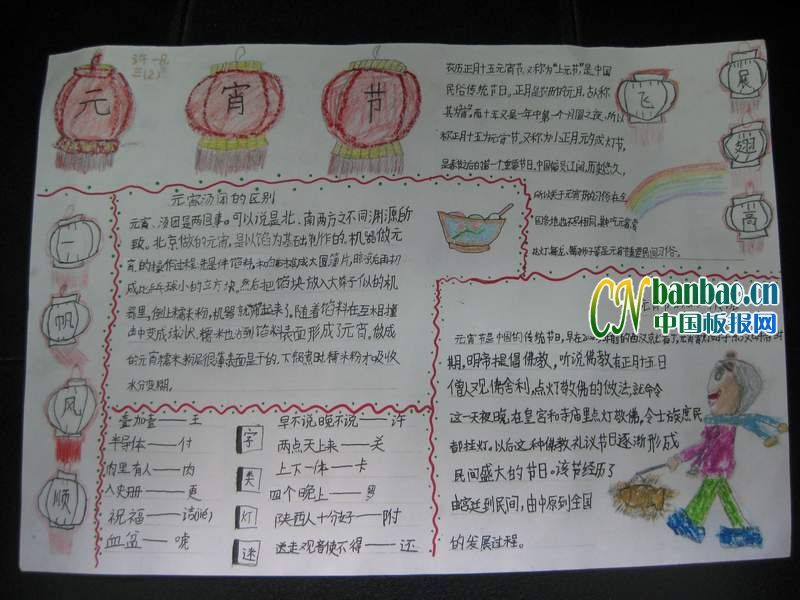 许一凡
三(2)
元 宵 节
农历正月十五元宵节,又称为“上元节”是中国
民俗传统节日。正月是农历的元月,古人称
其为“宵”。而十五又是一年中第一个月圆之夜,所以
称正月十五为元宵节。又称为
是春节之后的第一个重要节日。中国幅员辽阔,历史悠久,
所以关于元宵节的习俗在全
国各地也不尽相同,其中吃元宵
是元宵节重要民间习俗。
飞
展
翅
高
一
帆
风
顺
元宵汤团的区别
元宵、汤团是两回事。可以说是北、南两方之不同渊源所
致。北京做的元宵,是以馅为基础制作的。机器做元
宵的操作过程先是伴馅料,和匀摊成大圆薄片,晾凉后再切
成比乒乓球小的立方块。然后把馅块放入大筛子似的机
器里,倒上糯米粉,机器就筛起来了。随着馅料在互相撞
击中变成球状,糯米也沾到馅料表面形成了元宵。做成
的元宵糯米粉层很薄表面是干的。下锅煮时糯米粉才吸收
水分变糊。
叠加叠——王
半导体——付
内里有人——肉
入史册——更
祝福——
血盆——唬
字
类
灯
迷
早不说晚不说——许
两点天上来——关
上下一体——卡
四个晚上——罗
陕西人十分好——附
送走观音使不得——还
banbao.cn
中国板报网
元宵节是中国的传统节日,早在
期,明帝提倡佛教,听说佛教有正月十五日
僧人观佛舍利,点灯敬佛的做法,就命令
这一天夜晚,在皇宫和寺庙里点灯敬佛,令士族庶民
都挂灯。以后这种佛教礼议节日逐渐形成
民间盛大的节日。该节经历了
由宫廷到民间,由中原到全国
的发展过程。